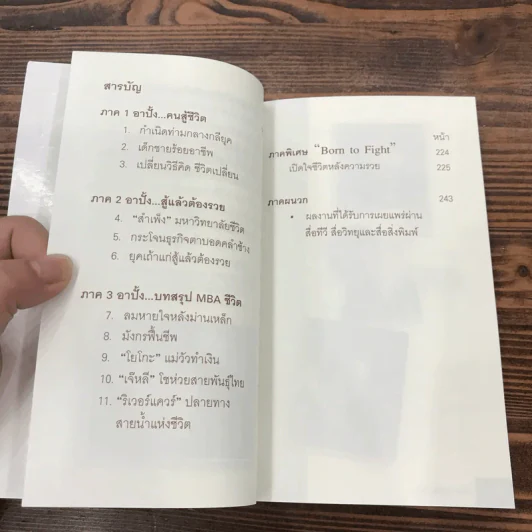 สารบัญ
ภาค 1 อาปั้ง...คนสู้ชีวิต
1. กำเนิดท่ามกลางกลียุค
2. เด็กชายร้อยอาชีพ
3. เปลี่ยนวิธีคิด ชีวิตเปลี่ยน
ภาค 2 อาปั้ง...สู้แล้วต้องรวย
4. “สำเพ็ง” มหาวิทยาลัยชีวิต
5. กระโจนธุรกิจตาบอดคลำช้าง
6. ยุคเถ้าแก่สู้แล้วต้องรวย
ภาค 3 อาปั้ง...บทสรุป MBA ชีวิต
7. ลมหายใจหลังม่านเหล็ก
8. มังกรฟื้นชีพ
9. “โยโกะ” แม่วัวทำเงิน
10. “เจ๊หลี” โชห่วยสายพันธุ์ไทย
11. “ริเวอร์แควร์” ปลายทาง
สายน้ำแห่งชีวิต
หน้า
ภาคพิเศษ “Born to Fight” 224
เปิดใจชีวิตหลังความรวย 225
ภาคผนวก 243
• ผลงานที่ได้รับการเผยแพร่ผ่าน
สื่อทีวี สื่อวิทยุและสื่อสิ่งพิมพ์